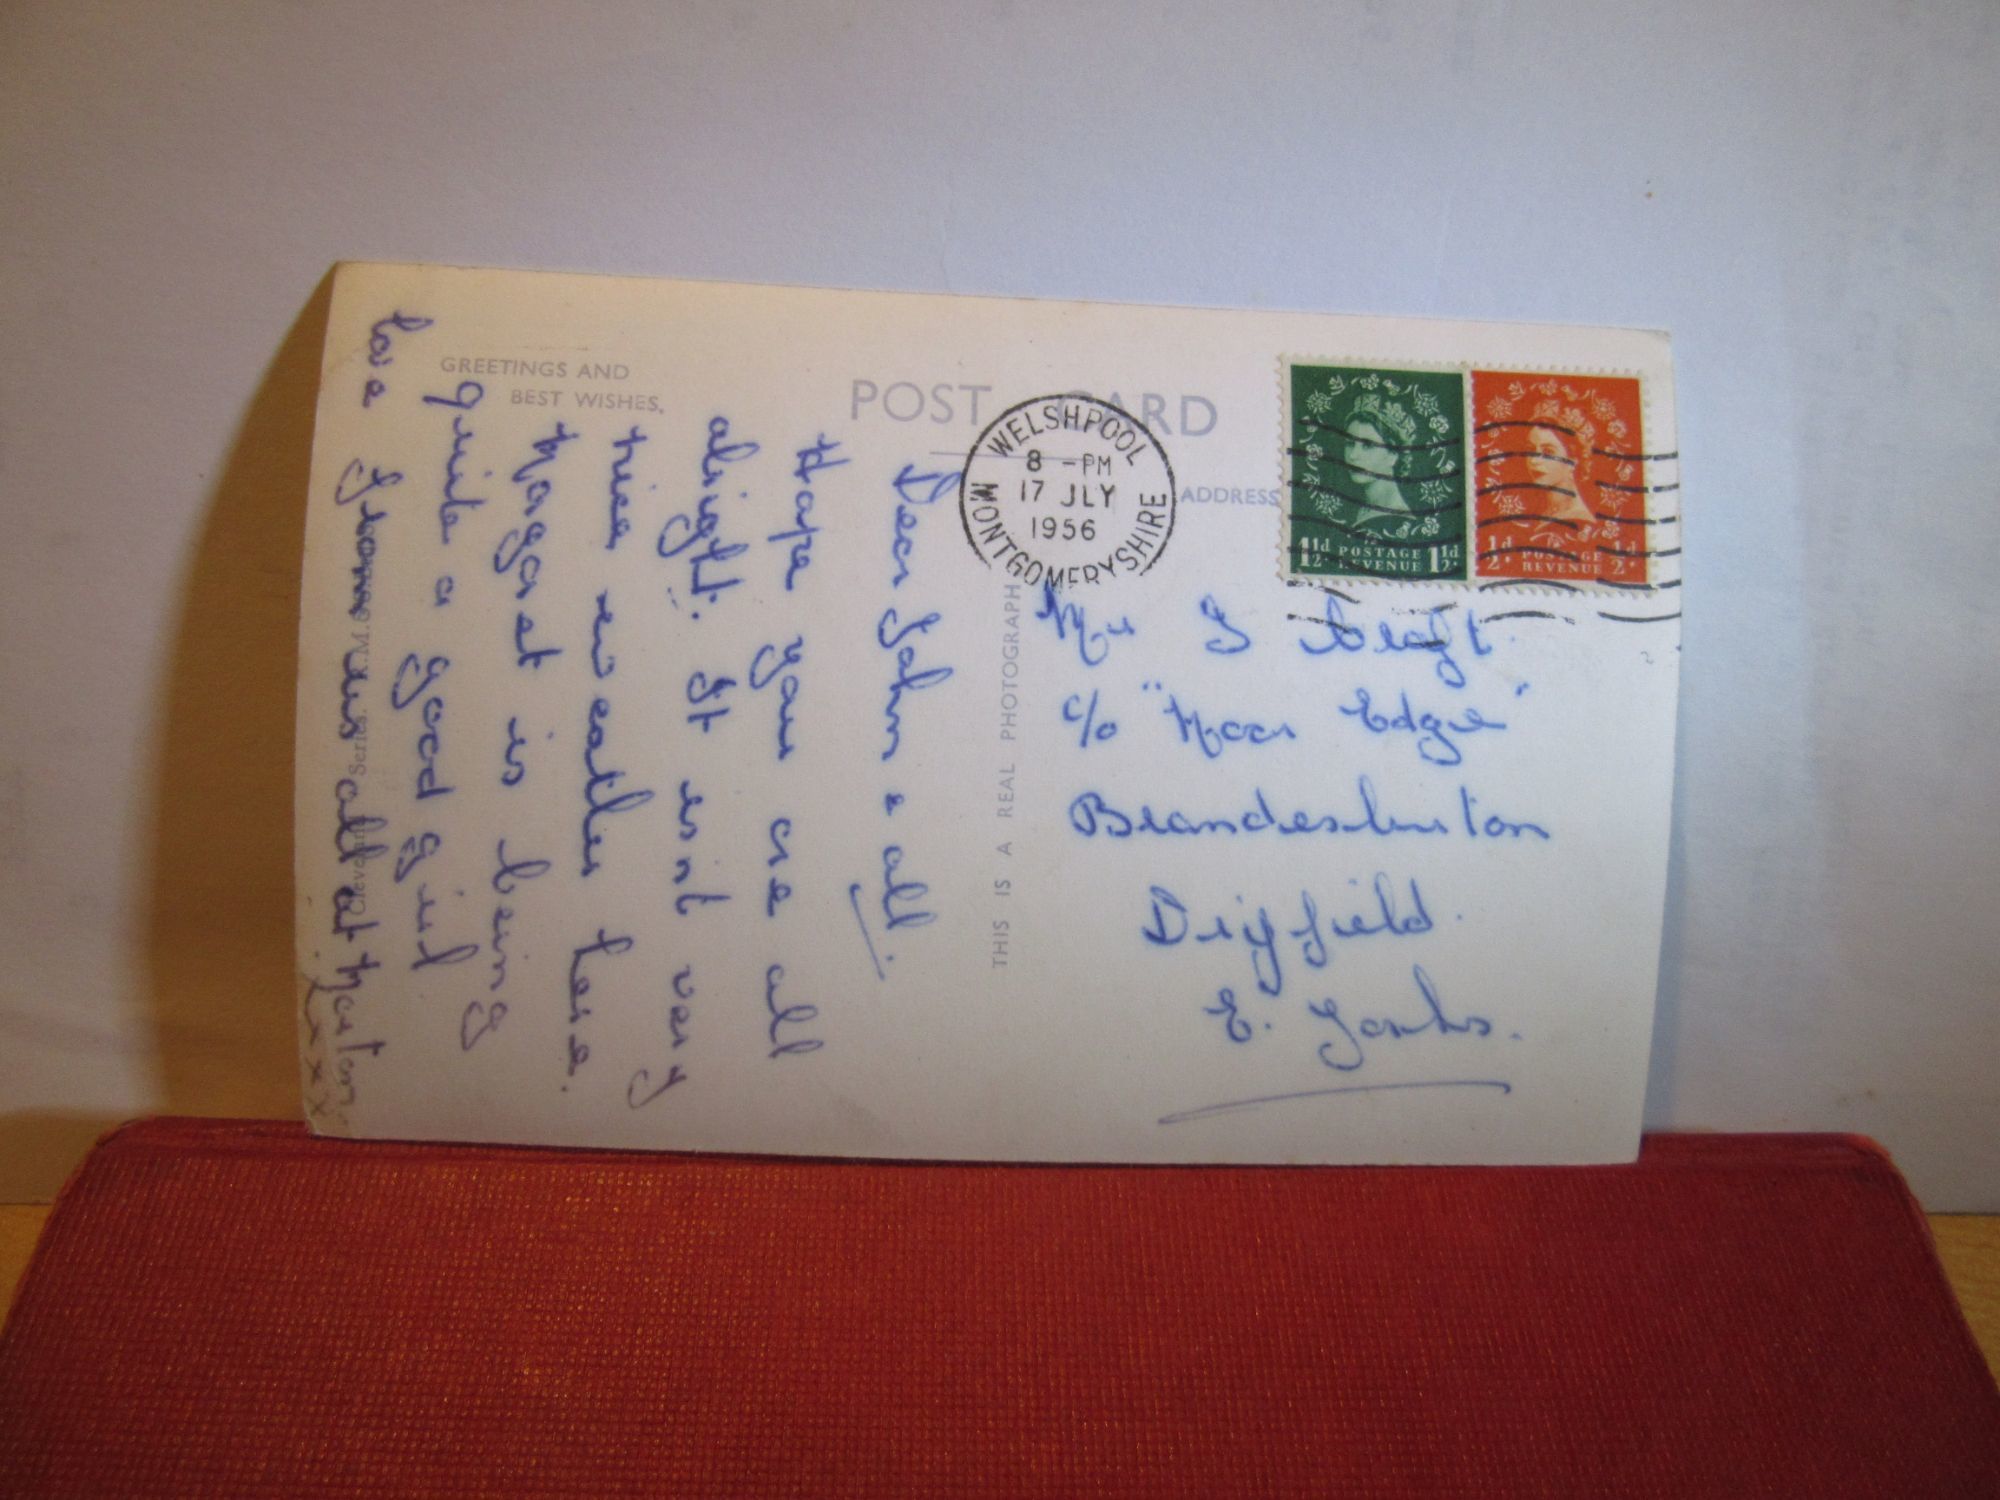 GREETINGS AND
BEST WISHES.
POST CARD
ADDRESS
WELSHPOOL
8 - PM
17 JLY
1956
MONTGOMERYSHIRE
1½d POSTAGE 1½d
REVENUE
½d POSTAGE ½d
REVENUE
THIS IS A REAL PHOTOGRAPH
Series.
Dear John & all.
Hope you are all
alright. It isnt very
nice weather here.
Margaret is being
quite a good girl
love from us all at
xxxx
Mr J
c/o "Moor Edge"
Brandesburton
Driffield.
E. Yorks.